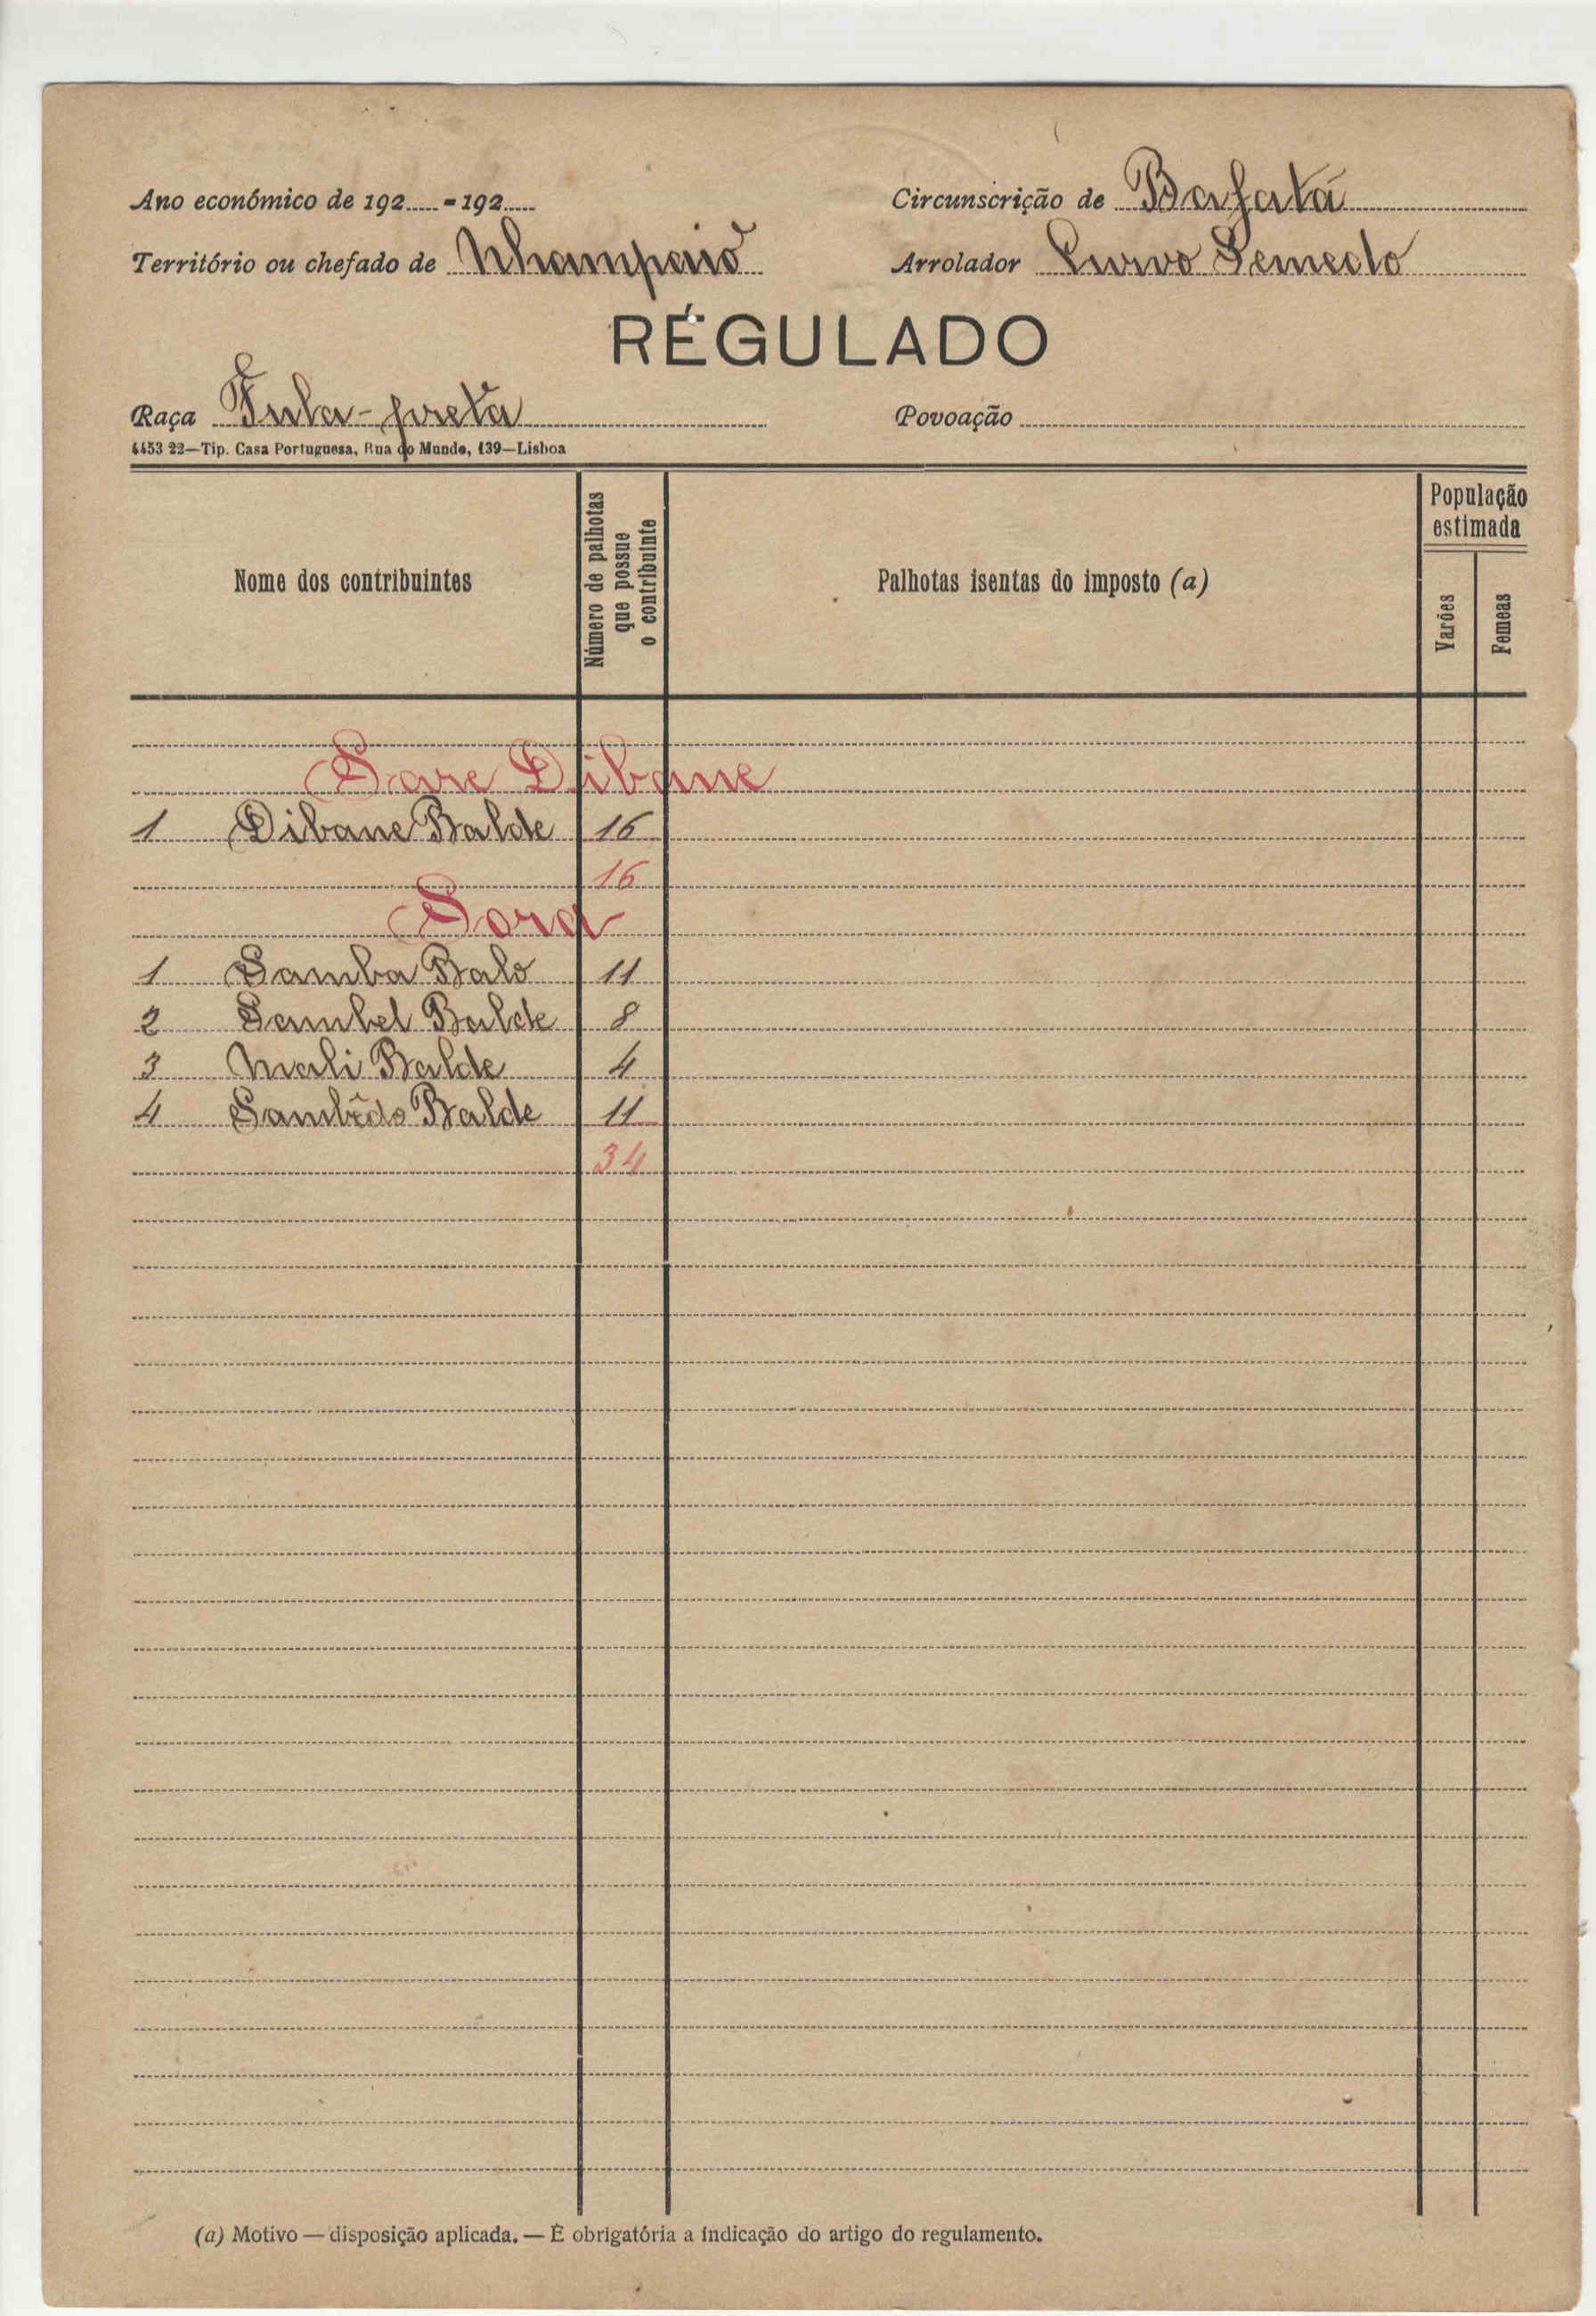 Ano económico de 192.....-192.....
Circunscrição de Bafatá
Território ou chefado de Nhampaió
Arrolador Curvo Semedo
RÉGULADO
Raça Fula-preta
Povoação
4453 22—Tip. Casa Portuguesa, Rua do Mundo, 139—Lisboa
Nome dos contribuintes
Número de palhotas que possue o contribuinte
Palhotas isentas do imposto (a)
População estimada
Varões
Femeas
Sare Dibane
1 Dibane Balde 16
16
Sora
1 Samba Balo 11
2 Sambel Balde 8
3 Mali Balde 4
4 Sambêdo Balde 11
34
(a) Motivo — disposição aplicada. — É obrigatória a indicação do artigo do regulamento.